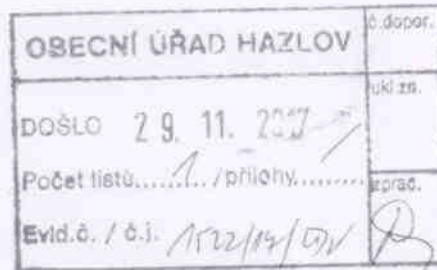 OBECNÍ ÚŘAD HAZLOV
č.dopor.
ukl.zn.
DOŠLO 29. 11.
Počet listů......1..../přílohy.........
zprac.
Evid.č. / č.j.